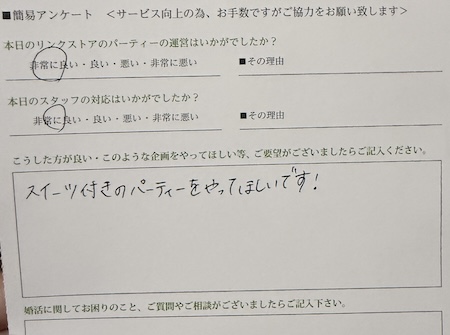 ■簡易アンケート ＜サービス向上の為、お手数ですがご協力をお願い致します＞
本日のリンクストアのパーティーの運営はいかがでしたか？
非常に良い・良い・悪い・非常に悪い ■その理由
本日のスタッフの対応はいかがでしたか？
非常に良い・良い・悪い・非常に悪い ■その理由
こうした方が良い・このような企画をやってほしい等、ご要望がございましたらご記入ください。
スイーツ付きのパーティーをやってほしいです！
婚活に関してお困りのこと、ご質問やご相談がございましたらご記入下さい。